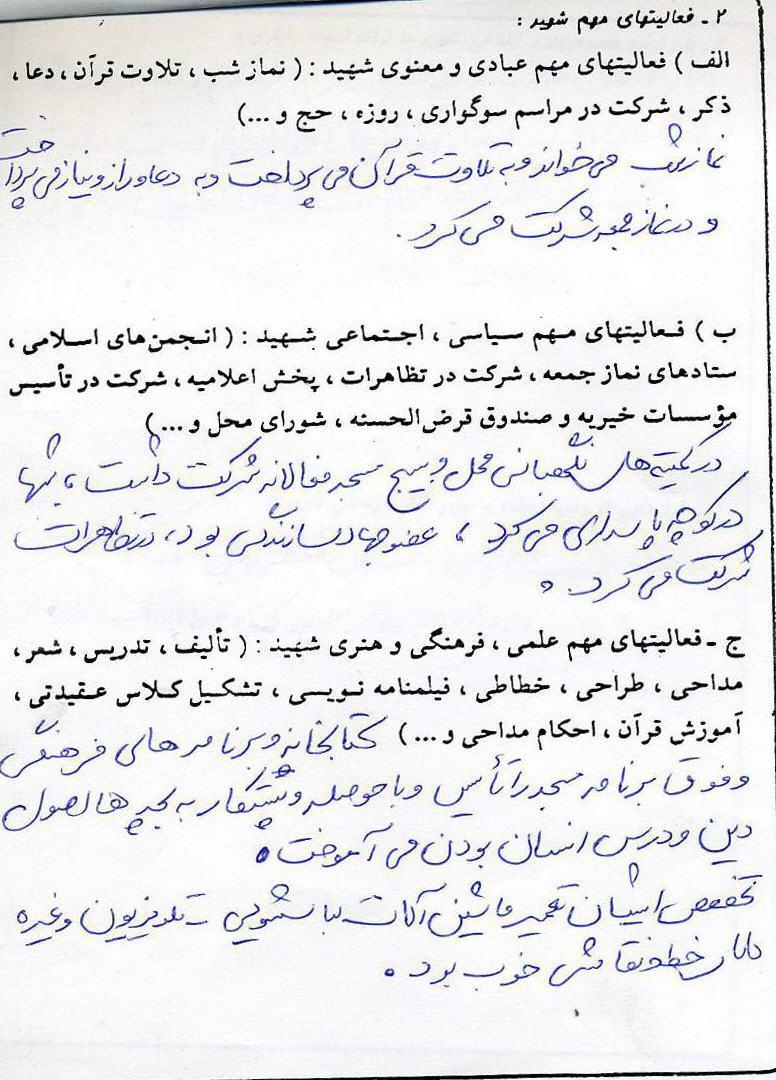 ۲ ـ فعالیتهای مهم شهید :
الف ) فعالیتهای مهم عبادی و معنوی شهید : ( نماز شب ، تلاوت قرآن ، دعا ،
ذکر ، شرکت در مراسم سوگواری ، روزه ، حج و ...)
نماز شب می خواند و به تلاوت قرآن می پرداخت و به دعا و راز و نیاز می پرداخت
و در نماز جمعه شرکت می کرد .
ب ) فعالیتهای مهم سیاسی ، اجتماعی شهید : ( انجمن‌های اسلامی ،
ستادهای نماز جمعه ، شرکت در تظاهرات ، پخش اعلامیه ، شرکت در تأسیس
مؤسسات خیریه و صندوق قرض‌الحسنه ، شورای محل و ...)
در کمیته های نگهبانی محل و بسیج مسجد فعالانه شرکت داشت ، شبها
در کوچه پاسداری می کرد ، عضو جهاد سازندگی بود ، در تظاهرات
شرکت می کرد .
ج ـ فعالیتهای مهم علمی ، فرهنگی و هنری شهید : ( تألیف ، تدریس ، شعر ،
مداحی ، طراحی ، خطاطی ، فیلمنامه نویسی ، تشکیل کلاس عقیدتی ،
آموزش قرآن ، احکام مداحی و ...) کتابخانه و برنامه های فرهنگی
و فوق برنامه مسجد را تأسیس و با حوصله و پشتکار به بچه ها اصول
دین و درس انسان بودن می آموخت .
تخصص ایشان تعمیر ماشین آلات لباسشویی ـ تلویزیون و غیره
دارای خط و نقاشی خوب بود .